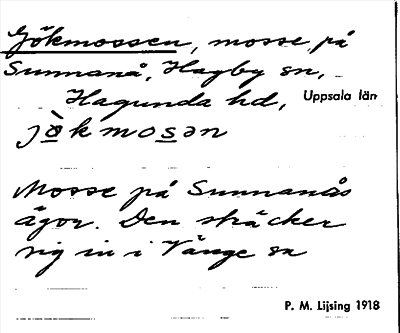 Gökmossen, mosse på
Sunnanå, Hagby sn,
Hagunda hd, Uppsala län
jö̀kmosən
Mosse på Sunnanås
ägor. Den sträcker
sig in i Vänge sn
P. M. Lijsing 1918